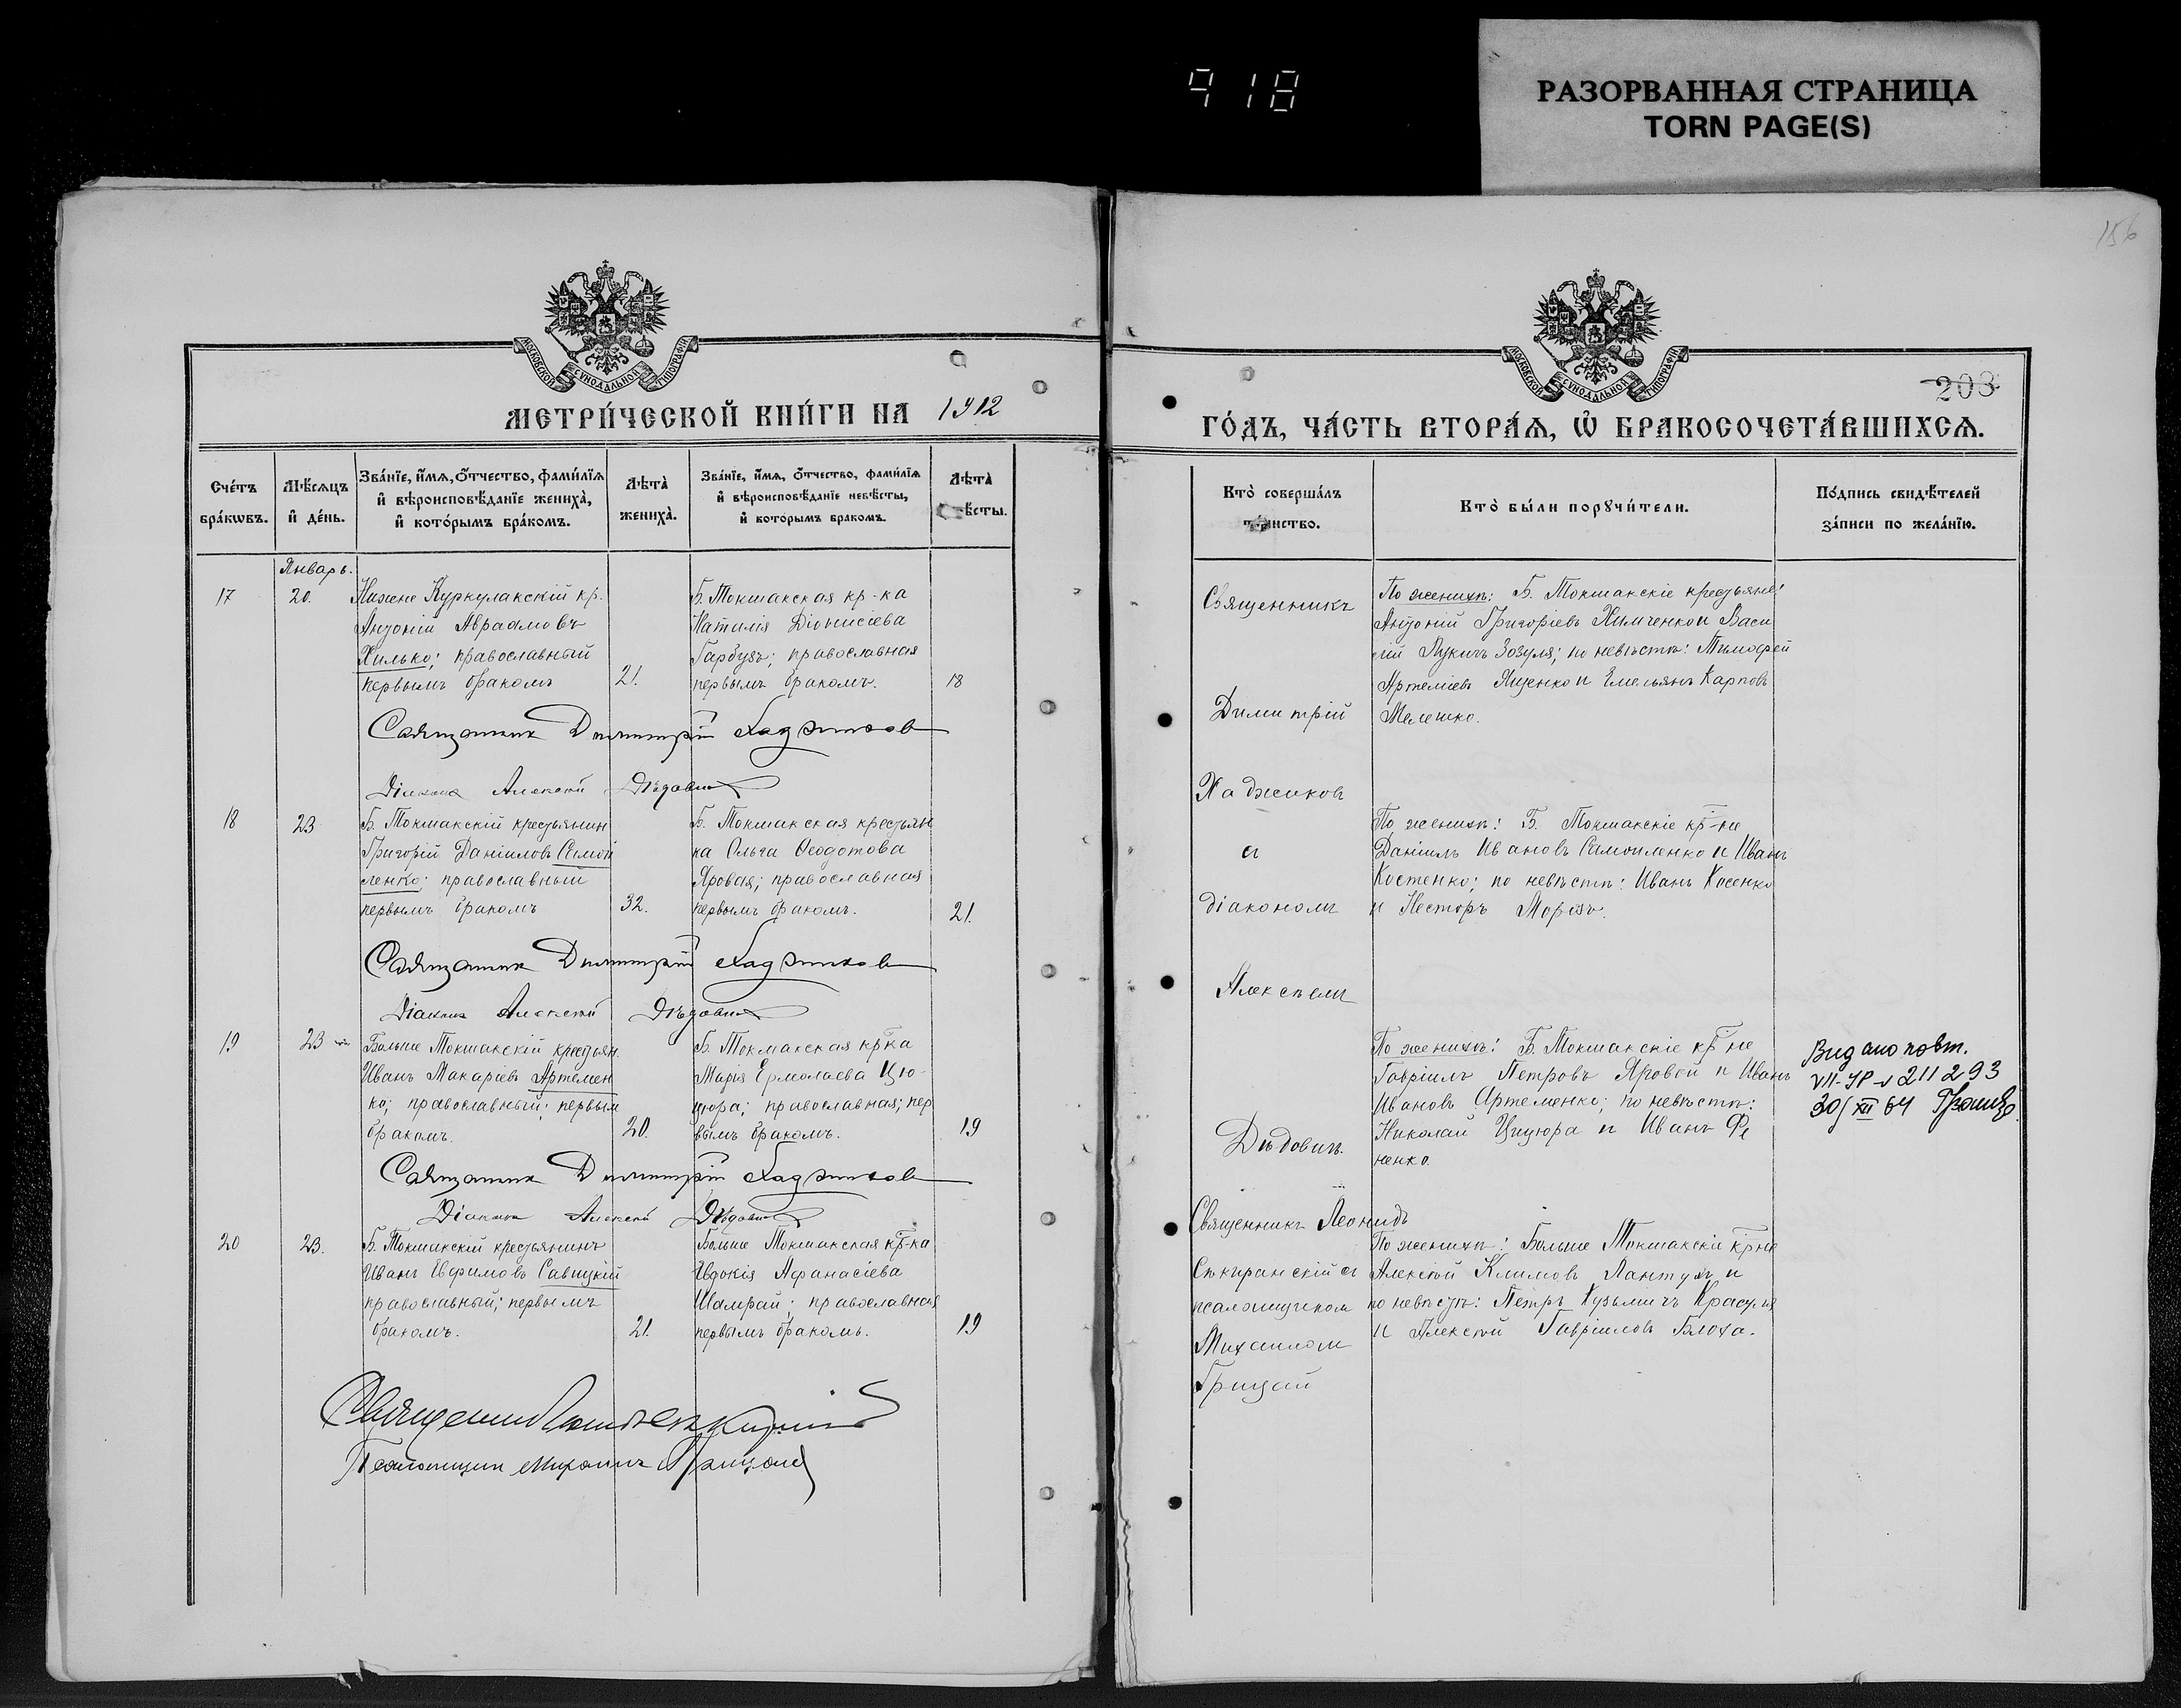 918
РАЗОРВАННАЯ СТРАНИЦА
TORN PAGE(S)
156
МОСКОВСКОЙ СУНОДАЛЬНОЙ ТИПОГРАФІИ
МЕТРИ́ЧЕСКОЙ КНИ́ГИ НА 1912
Сче́тъ бра́кѡвъ.
Мѣ́сяцъ и҆ де́нь.
Зва́нїе, и҆́мѧ, ѻ҆́тчество, фами́лїѧ
и҆ вѣроисповѣ́данїе женихà,
и҆ кото́рымъ бра́комъ.
Лѣ́та̀ женихà.
Зва́нїе, и҆́мѧ, ѻ҆́тчество, фами́лїѧ
и҆ вѣроисповѣ́данїе невѣ́сты,
и҆ которымъ бракомъ.
Лѣ́та̀ ѣ́сты.
Январь.
17
20.
Нижне Куркулакскій кр.
Антоній Авраамовъ
Хилько; православный
первымъ бракомъ
21.
Б. Токмакская кр-ка
Наталія Діонисіева
Гарбузъ; православная
первымъ бракомъ.
18
Священникъ Димитрій Хаджиковъ
Діаконъ Алексѣй Дѣдовичъ
18
23
Б. Токмакскій крестьянин
Григорій Даніиловъ Самой
ленко; православный
первымъ бракомъ
32.
Б. Токмакская крестьян
ка Ольга Ѳеодотова
Яровая; православная
первымъ бракомъ.
21.
Священникъ Димитрій Хаджиковъ
Діаконъ Алексѣй Дѣдовичъ
19
23
Больше Токмакскій крестьян.
Иванъ Макаріевъ Артемен
ко; православный; первым
бракомъ.
20.
Б. Токмакская кр-ка
Марія Ермолаева Цю-
цюра; православная; пер
вымъ бракомъ.
19
Священникъ Димитрій Хаджиковъ
Діаконъ Алексѣй Дѣдовичъ
20
23.
Б. Токмакскій крестьянинъ
Иванъ Евфимовъ Савицкій
православный; первымъ
бракомъ.
21.
Больше Токмакская кр-ка
Евдокія Афанасіева
Шамрай; православная
первымъ бракомъ.
19
Священникъ
Псаломщикъ Михаилъ Грицай
МОСКОВСКОЙ СУНОДАЛЬНОЙ ТИПОГРАФІИ
203
ГО́ДЪ, ЧА́СТЬ ВТОРА́Ѧ, Ѽ БРАКОСОЧЕТА́ВШИХСѦ.
Кто̀ соверша́лъ
та́инство.
Кто̀ бы́ли порꙋчи́тели.
По́дпись свидѣ́телей
за́писи по жела́нїю.
Священникъ
Димитрій
Хаджиковъ
съ
діакономъ
Алексѣемъ
Дѣдовичъ.
По женихѣ: Б. Токмакскіе крестьяне:
Антоній Григоріевъ Химченко и Васи
лій Лукичъ Зозуля; по невѣстѣ: Тимофей
Артеміевъ Яценко и Емельянъ Карповъ
Мелешко.
По женихѣ: Б. Токмакскіе кр-не
Даніилъ Ивановъ Самоиленко и Иванъ
Костенко; по невѣстѣ: Иванъ Косенко
и Несторъ Морозъ.
По женихѣ: Б. Токмакскіе кр-не
Гавріилъ Петровъ Яровой и Иванъ
Ивановъ Артеменко; по невѣстѣ:
Николай Цюцюра и Иванъ Фе
ненко.
Видано повт.
211293
30/XII 64
Священникъ Леонидъ
Сѣкиранскій съ
псаломщиком
Михаилом
Грицай
По женихѣ: Больше Токмакскіе кр-не
Алексѣй Климовъ Лантухъ и
по невѣстѣ: Петръ Кузьмичъ Красуля
и Алексѣй Гавріиловъ Блоха.